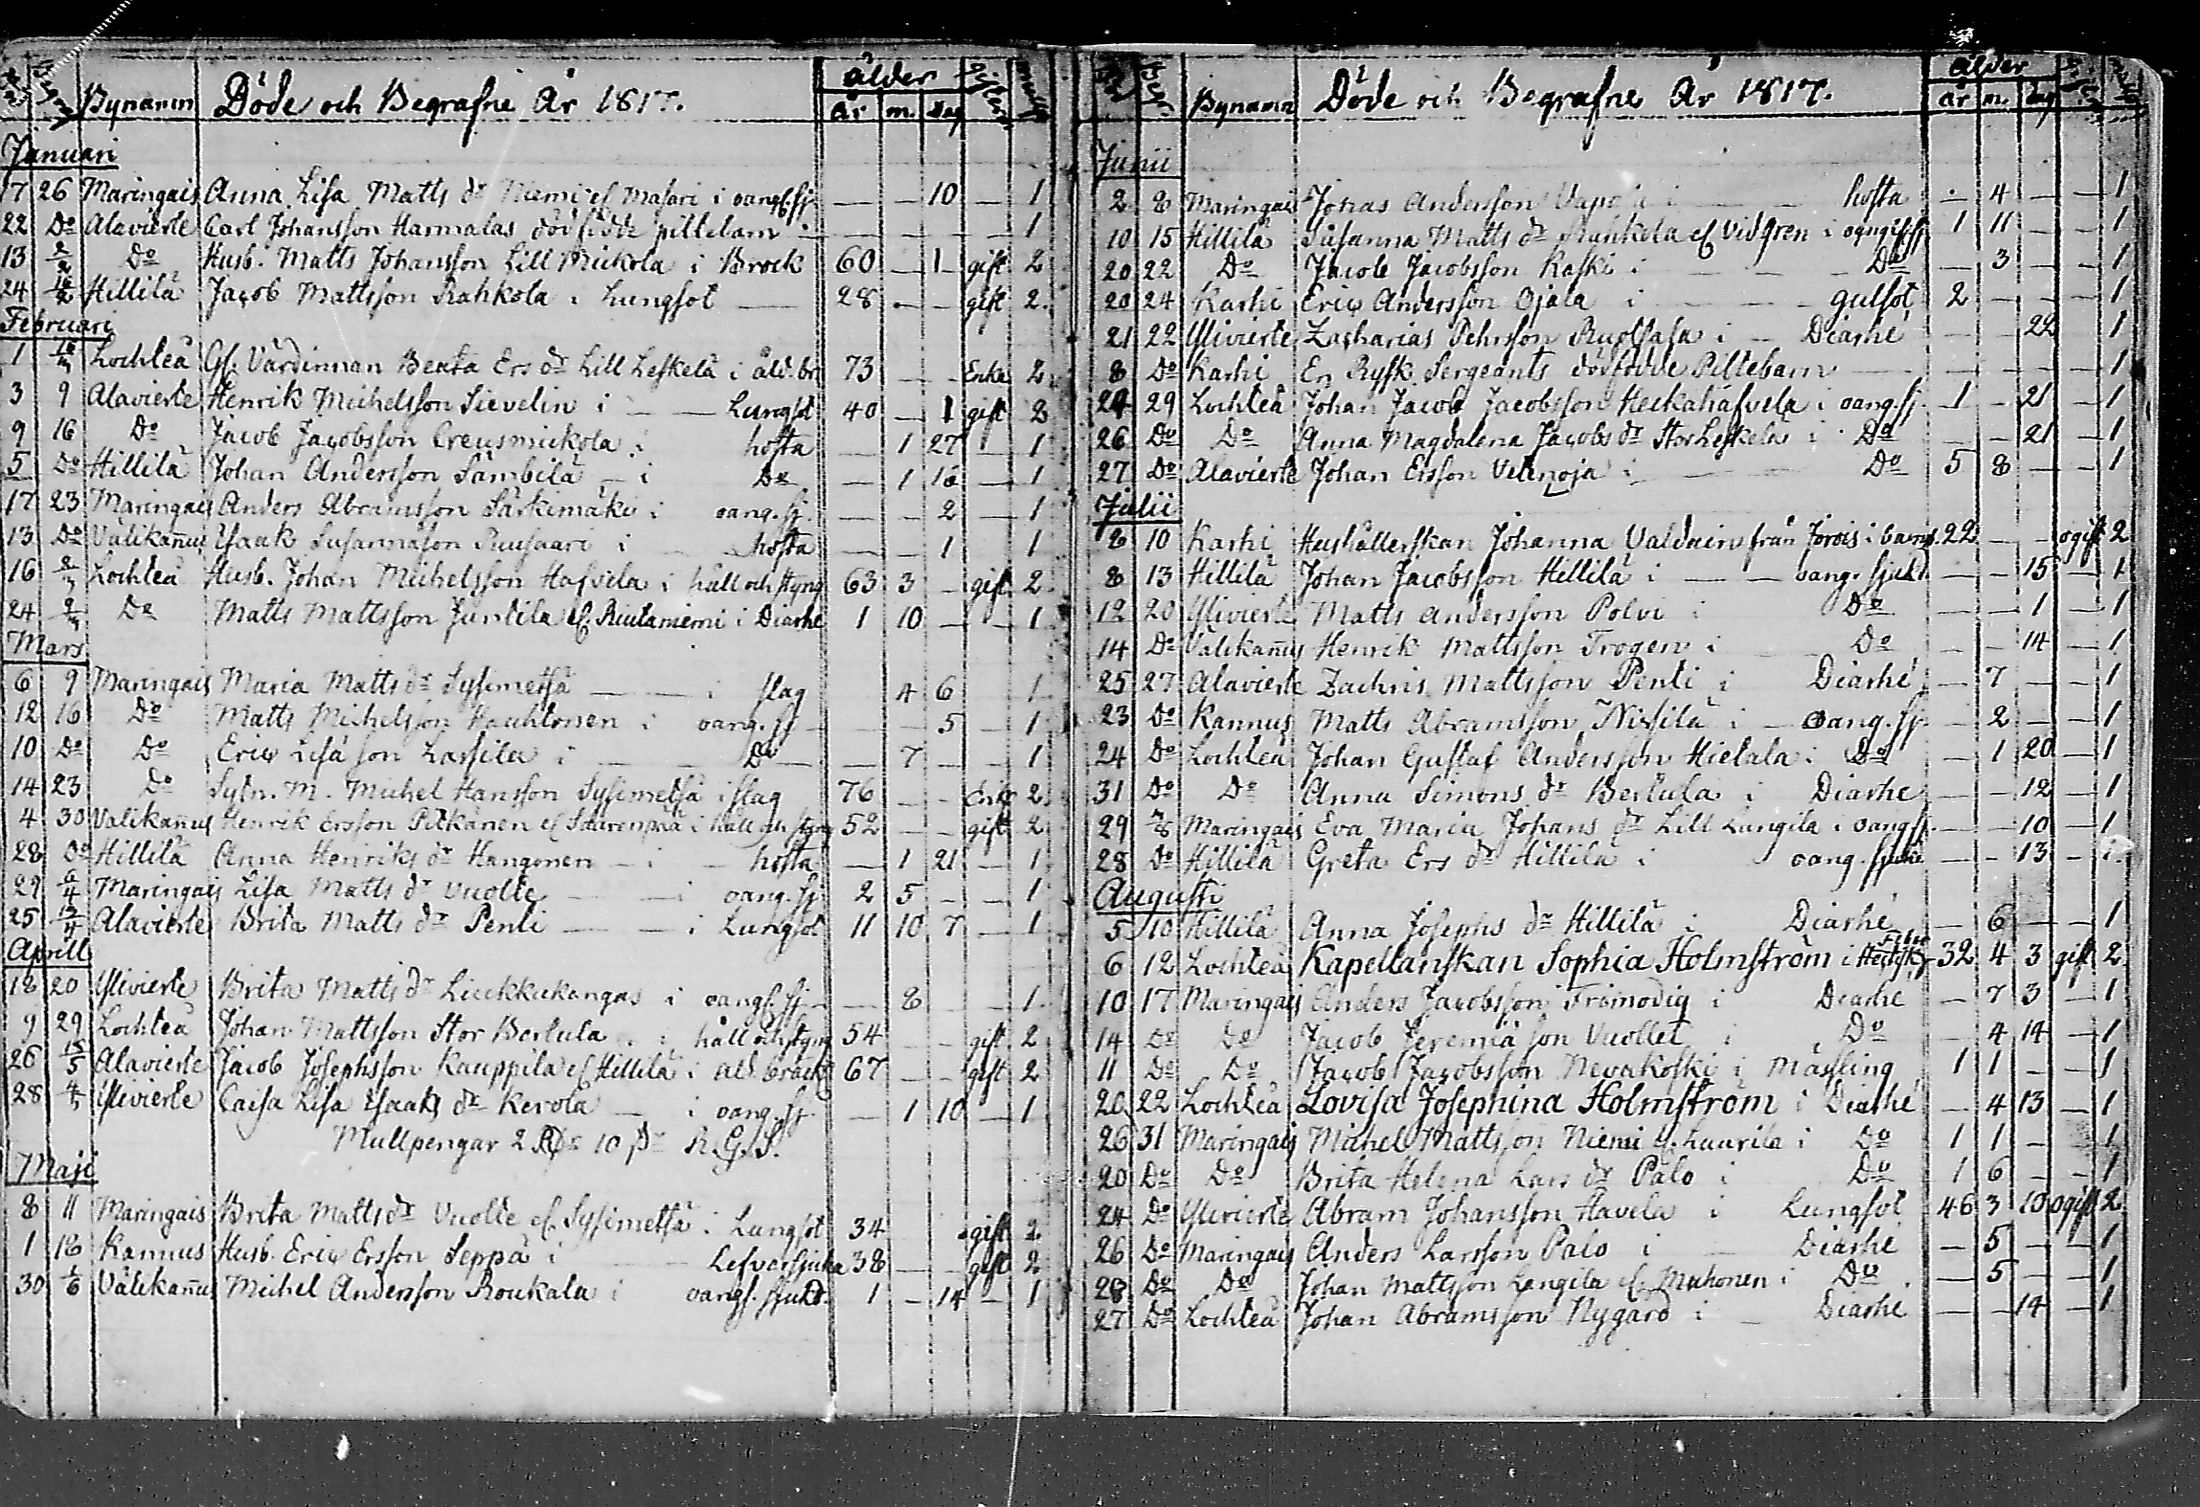 Bynamn Döde och Begrafne År 1817. ålder år m dag
Januari
17 26 Maringais Anna Lisa Matts dr Niemi ef Masari i oangf. sj. — — 10 — 1
22 Do Alavierte Carl Johansson Hannulas dödfödde piltebarn — — — — 1
13 2/2 Do Husb. Matts Johansson Lill Mickola i Brock 60 — 1 gift 2
24 16/2 Hillilä Jacob Mattsson Rahkola i Lungsot 28 — — gift 2
Februari
1 Lochteå Gl. Värdinnan Beata Ers dr Lill Leskelä i åld. br 73 — — Enka 2
3 9 Alavierte Henrik Michelsson Sievelin i Lungsot 40 — 1 gift 2
9 16 Do Jacob Jacobsson Creusmickola i hosta — 1 27 — 1
5 Do Hillilä Johan Andersson Sämbilä i Do — 1 16 — 1
17 23 Maringais Anders Abramsson Särkimäki i oang. sj. — — 2 — 1
13 Do Välikañus Ysaak Susannason Puusaari i hosta — — 1 1
16 2/3 Lochteå Husb. Johan Michelsson Hafvela i håll och styng 63 3 — gift 2
24 Do Matts Mattsson Juntila ef. Riutaniemi i Diarhé 1 10 — — 1
Mars
6 9 Maringais Maria Matts dr Sysimetsä i slag 4 6 1
12 16 Do Matts Michelsson Hauhtonen i oang. sj — — 5 1
10 Do Do Eric Lisä son Lassila i Do — 7 — 1
14 23 Do Sytn. M. Michel Hansson Sysimetsä i slag 76 — — Enkl 2
4 30 Välikañus Henrik Ersson Pitkänen ef Saarenpää i håll och styng 52 — — gift 2
28 Do Hillilä Anna Henriks dr Hangonen i hosta — 1 21 — 1
29 6/4 Maringais Lisa Matts dr Vuolte i oang. sj 2 5 — — 1
25 /4 Alavierte Brita Matts dr Penti i Lungsot 11 10 7 — 1
Aprill
18 20 Ylivierte Brita Matts dr Liukkukangas i oangf. sj — 8 — — 1
9 29 Lochteå Johan Mattsson Stor Bertula i håll och styng 54 — — gift 2
26 /5 Alavierte Jacob Josephsson Kauppila ef Hillilä i åld. bräckl 67 — — gift 2
28 4/5 Ylivierte Caisa Lisa Ysaaks dr Kerola i oang. sj — 1 10 — 1
Mullpengar 2 Rdr 10 R. G. S.
Maji
8 11 Maringais Brita Matts dr Vuolte ef. Sysimetsä i Lungsot 34 gift 2
1 18 Kannus Husb. Eric Ersson Seppä i Lefversjuka 38 — — gift 2
30 1/6 Välikañus Michel Andersson Roukala i oangf. sjukd. 1 — 14 — 1
Bynamn Döde och Begrafne År 1817. ålder år m. dag
Junii
2 8 Maringais Johas Andersson i hosta — 4 — — 1
10 15 Hillilä Susanna Matts dr Rahkola ef Vidgren i 1 11 — — 1
20 22 Do Jacob Jacobsson Kaski i Do — 3 — — 1
20 24 Karhi Eric Andersson Ojala i gulsot 2 — — — 1
21 22 Ylivierte Zacharias Pehrsson Ruotsala i Diarhé — — 22 1
8 Do Karhi En Rysk Sergeants dödfödde Piltebarn — — — — 1
24 29 Lochteå Johan Jacob Jacobsson Heckahafvela i oang. sj. 1 — 21 — 1
26 Do Do Anna Magdalena Jacobs dr Stor Leskelä i Do — — 21 — 1
27 Do Alavierte Johan Ersson Velinoja i Do 5 8 — — 1
Julii
8 10 Karhi Hushållerskan Johanna Valdnin från Jorois i barns. 22 — — ogift 2
8 13 Hillilä Johan Jacobsson Hillilä i oang. sjukd — — 15 — 1
12 20 Ylivierte Matts Andersson Polvi i Do — — 1 — 1
14 Do Välikañus Henrik Mattsson Trogen i Do — — 14 — 1
25 27 Alavierte Zachris Mattsson Penti i Diarhé — 7 — — 1
23 Do Kannus Matts Abramsson Niskilä i oang. sj. — 2 — — 1
24 Do Lochteå Johan Gustaf Andersson Hietala i Do — 1 20 — 1
31 Do Do Anna Simons dr Bertula i Diarhé — — 12 — 1
29 /8 Maringais Eva Maria Johans dr Lill Lungila i oang sj. — — 10 — 1
28 Do Hillilä Greta Ers dr Hillilä i oang. sjukd — — 13 — 1
Augusti
5 10 Hillilä Anna Josephs dr Hillilä i Diarhé — 6 — — 1
6 12 Lochteå Kapellanskan Sophia Holmström i 32 4 3 gift 2
10 17 Maringais Anders Jacobsson Frimodig i Diarhé — 7 3 — 1
14 Do Do Jacob Jeremiä son Vuollet i Do — 4 14 — 1
11 Do Do Jacob Jacobsson Nevakoski i Mässling 1 1 — — 1
20 22 Lochteå Lovisa Josephina Holmström i Diarhé — 4 13 — 1
26 31 Maringais Michel Mattsson Niemi ef. Laurila i Do 1 1 — — 1
20 Do Do Brita Helena Lars dr Palo i Do 1 6 — — 1
24 Do Ylivierte Abram Johansson Havela i Lungsot 46 3 10 ogift 2
26 Do Maringais Anders Larsson Palo i Diarhé — 5 — — 1
28 Do Do Johan Mattsson Langila ef. Muhonen i Do — 5 — — 1
27 Do Lochteå Johan Abramsson Nygård i Diarhé — — 14 — 1